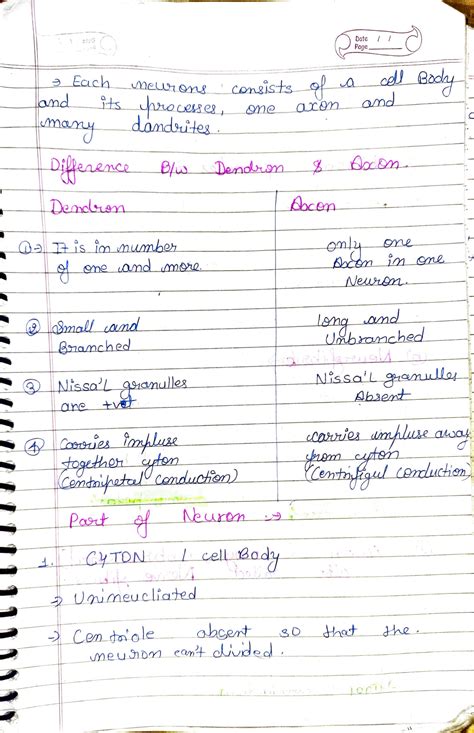 Date / /
Page
→ Each neurons consists of a cell Body
and its processes, one axon and
many dandrites.
Difference B/w Dendron & Axon.
Dendron
Axon
①→ It is in number
of one and more.
only one
Axon in one
Neuron.
② Small and
Branched
long and
Unbranched
③ Nissa'L granulles
are +ve
Nissa'L granulles
Absent
④ Carries impluse
together cyton
(Centripetal conduction)
carries impluse away
from cyton
(Centrifigul conduction)
Part of Neuron :→
1. CYTON / cell Body
→ Unineucliated
→ Centriole absent so that the
neuron can't divided.